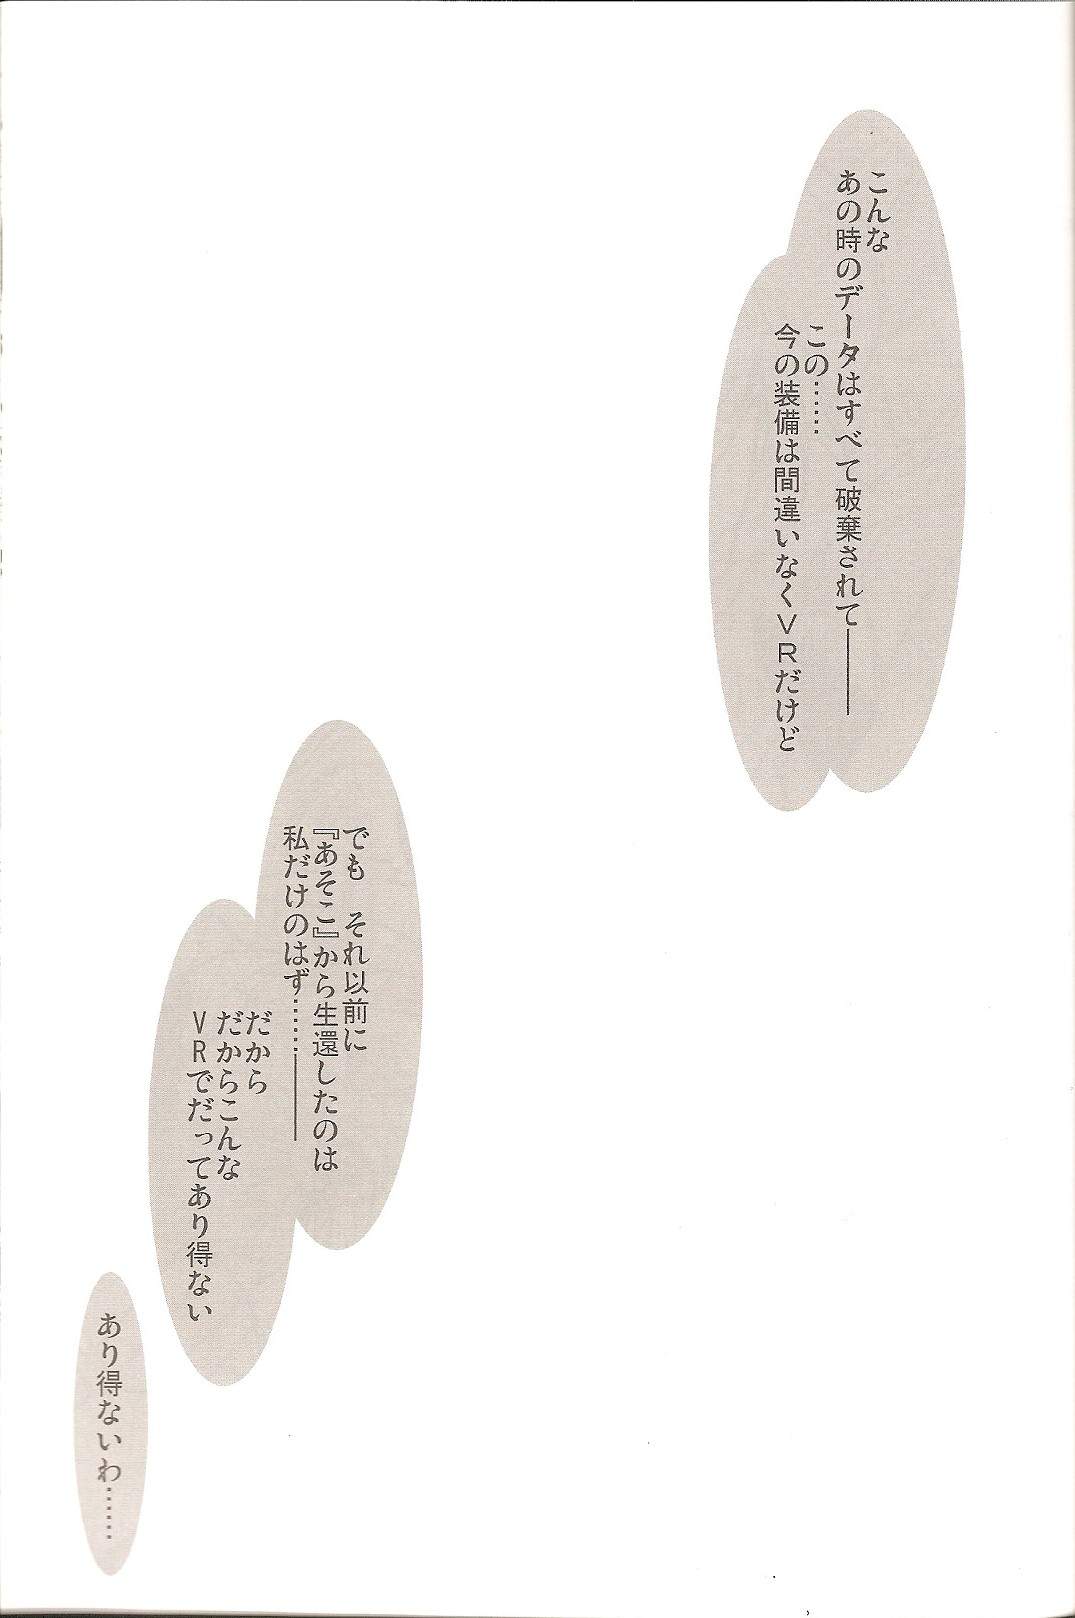 こんな
あの時のデータはすべて破棄されて———
この……
今の装備は間違いなくＶＲだけど
でも　それ以前に
『あそこ』から生還したのは
私だけのはず……———
だから
だからこんな
ＶＲでだってあり得ない
あり得ないわ……